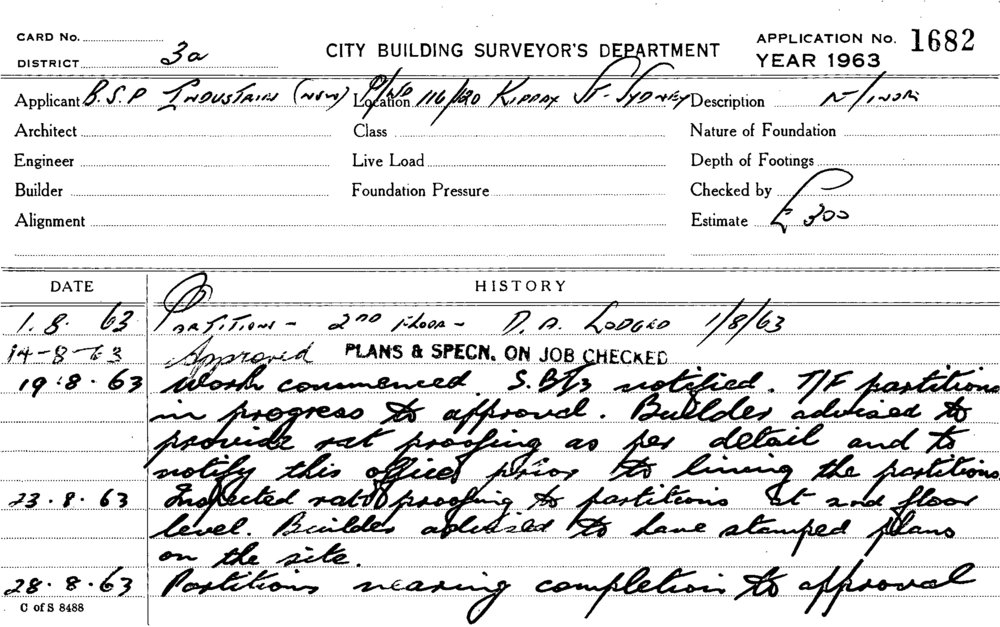 CARD No.
DISTRICT 3a
CITY BUILDING SURVEYOR'S DEPARTMENT
APPLICATION No. 1682
YEAR 1963
Applicant B.S.P Industries (NSW) Location 116/120 Kippax St. Sydney Description Minor
Architect Class Nature of Foundation
Engineer Live Load Depth of Footings
Builder Foundation Pressure Checked by
Alignment Estimate £300
DATE HISTORY
1. 8. 63 Partitions - 2nd Floor - D.A. Lodged 1/8/63
14-8-63 Approved PLANS & SPECN. ON JOB CHECKED
19.8.63 Work commenced. notified. T/F partitions
in progress to approval. Builder advised to
provide rat proofing as per detail and to
notify this office prior to lining the partitions.
23.8.63 Inspected rat proofing to partitions at 2nd floor
level. Builder advised to have stamped plans
on the site.
28.8.63 Partitions nearing completion to approval
C of S 8488